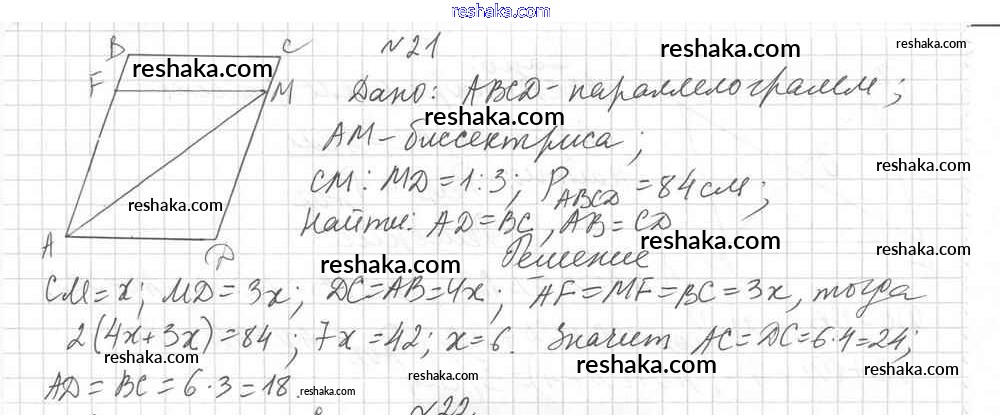 reshaka.com
B C №21
reshaka.com reshaka.com reshaka.com
F M Дано: ABCD - параллелограмм;
reshaka.com
AM - биссектриса;
reshaka.com
CM : MD = 1:3; P ABCD = 84 см;
reshaka.com
Найти: AD = BC, AB = CD
A D reshaka.com reshaka.com
Решение
reshaka.com
CM = x; MD = 3x; DC = AB = 4x; AF = MF = BC = 3x, тогда
reshaka.com
2(4x+3x) = 84; 7x = 42; x = 6. Значит AC = DC = 6·4 = 24;
reshaka.com reshaka.com reshaka.com
AD = BC = 6·3 = 18.
reshaka.com reshaka.com
№22